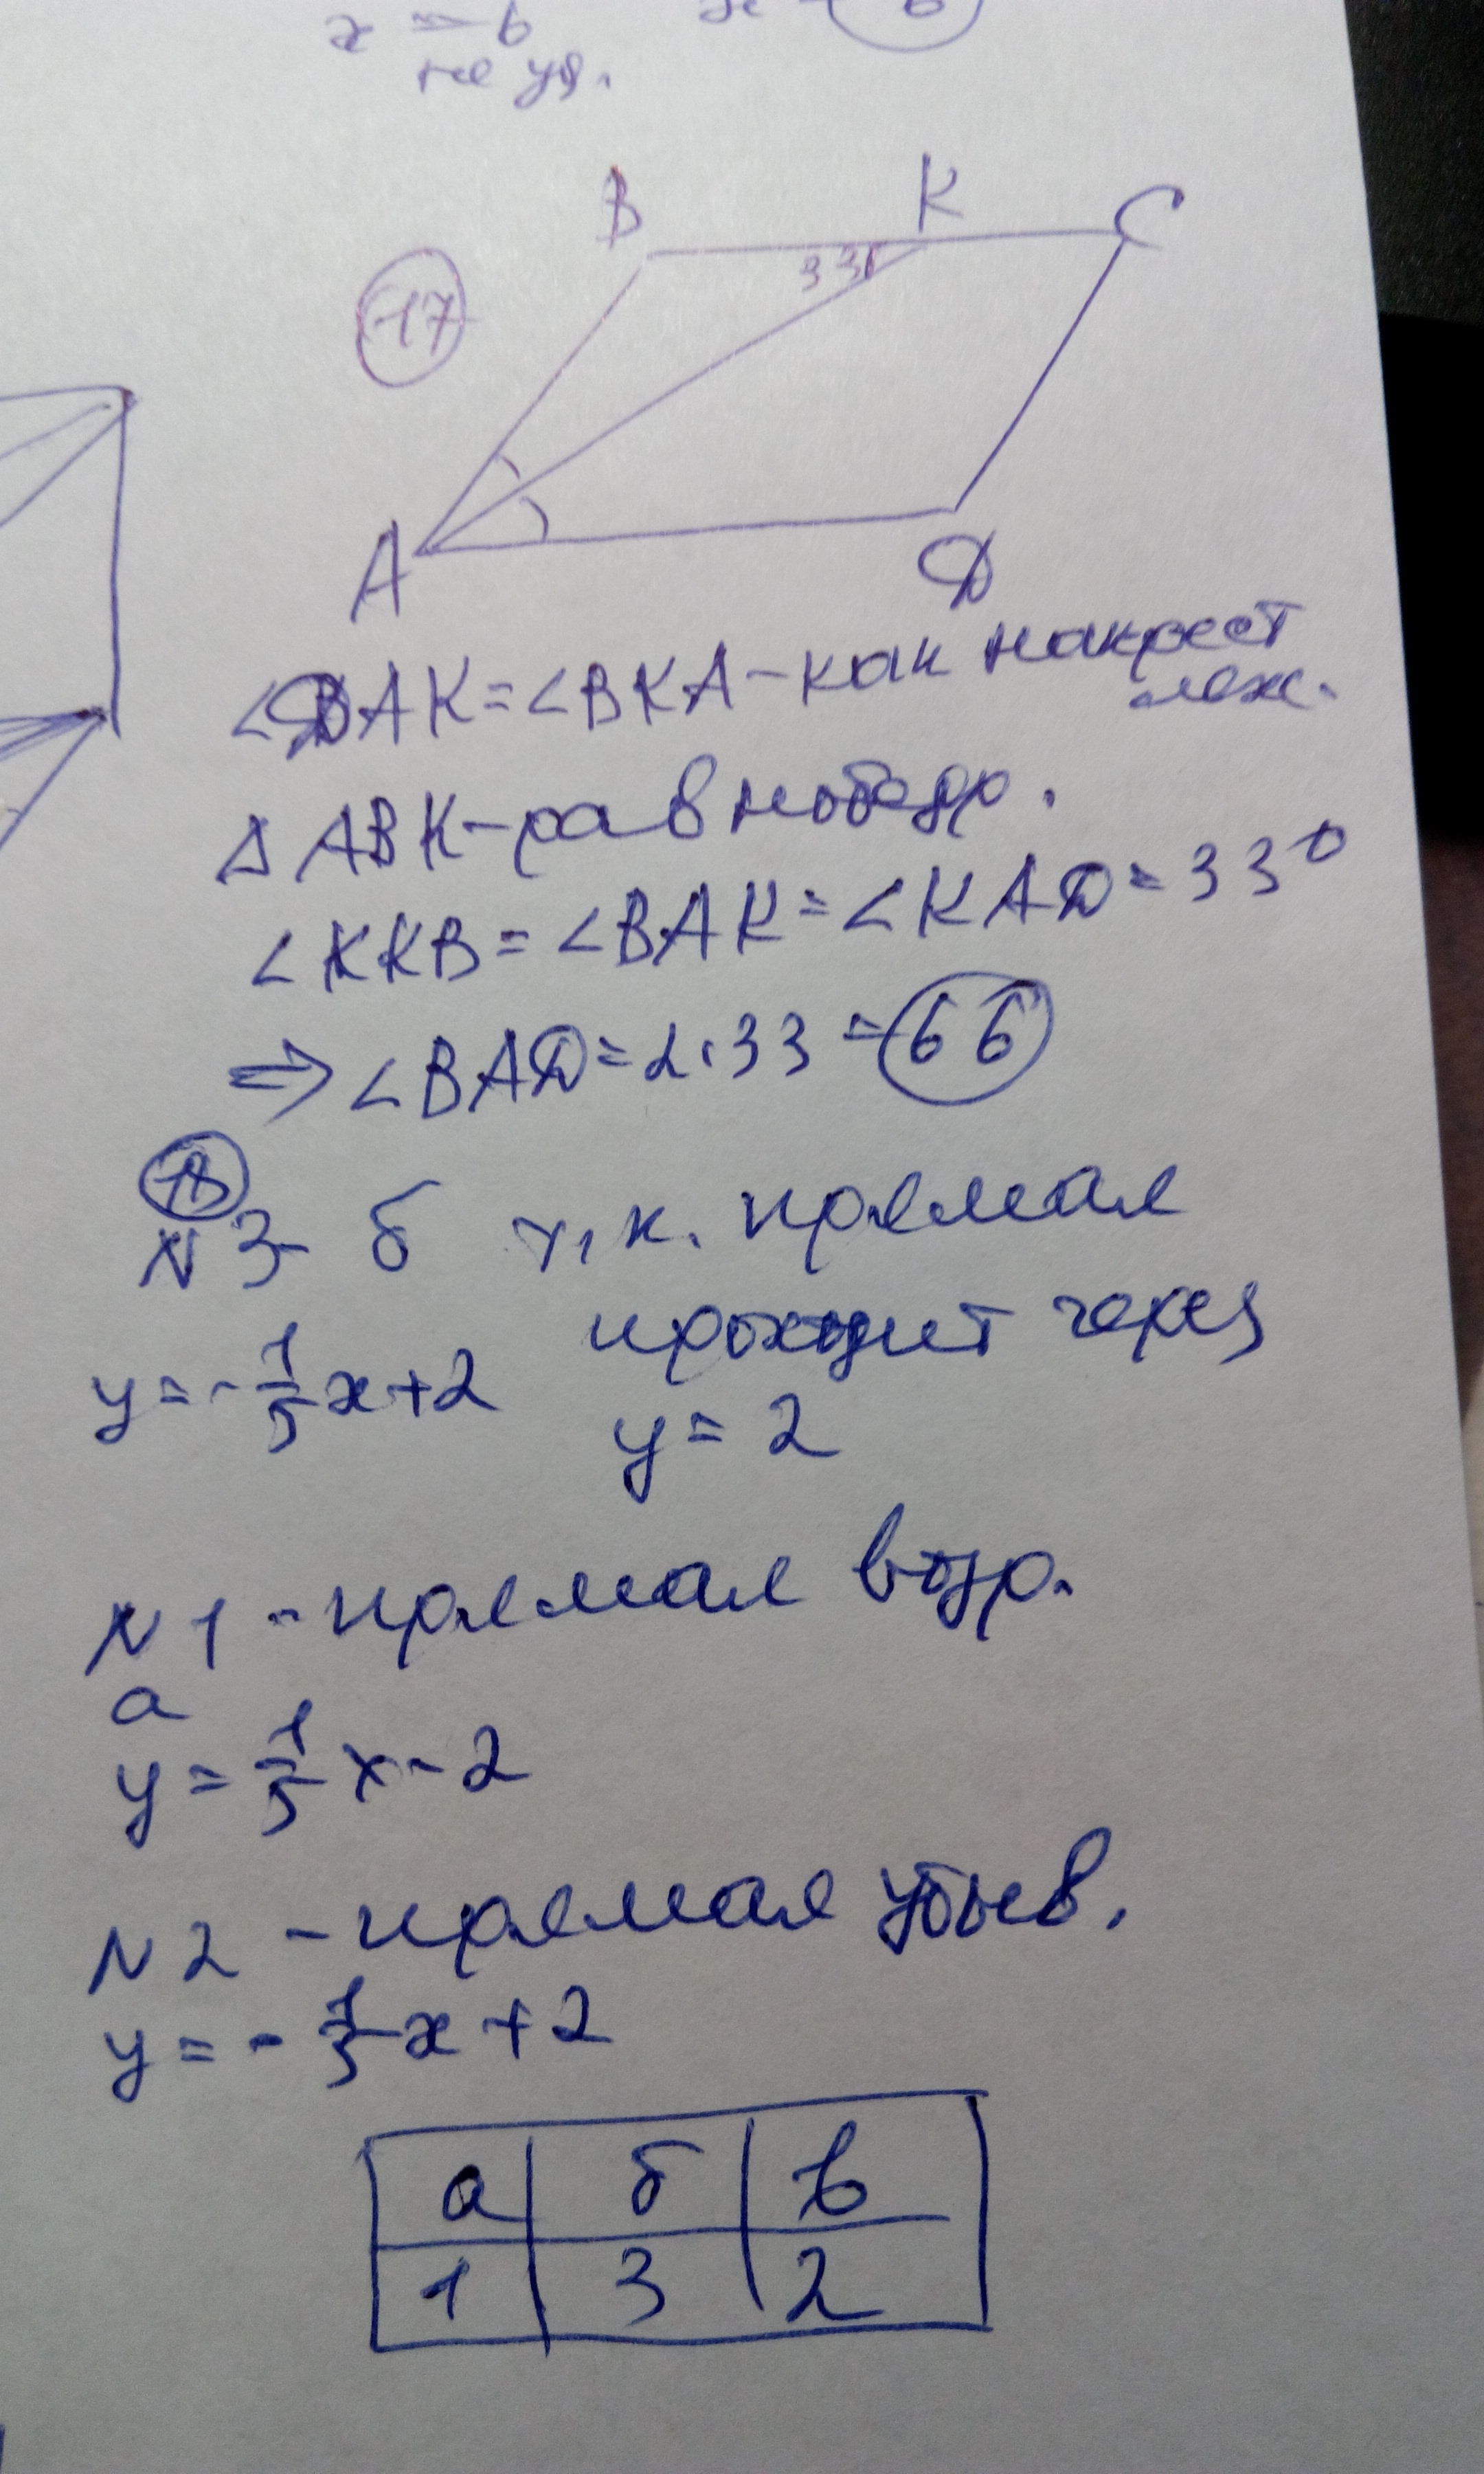 x = 6
не уд.
17
B K C
33
A D
∠DAK = ∠BKA - как накрест
леж.
Δ ABK - равнобедр.
∠AKB = ∠BAK = ∠KAD = 33°
⇒ ∠BAD = 2·33 = 66
18
N 3 - б т.к. прямая
проходит через
y = -1/5 x + 2
y = 2
N 1 - прямая возр.
а
y = 1/5 x - 2
N 2 - прямая убыв.
y = - x + 2
а б в
1 3 2